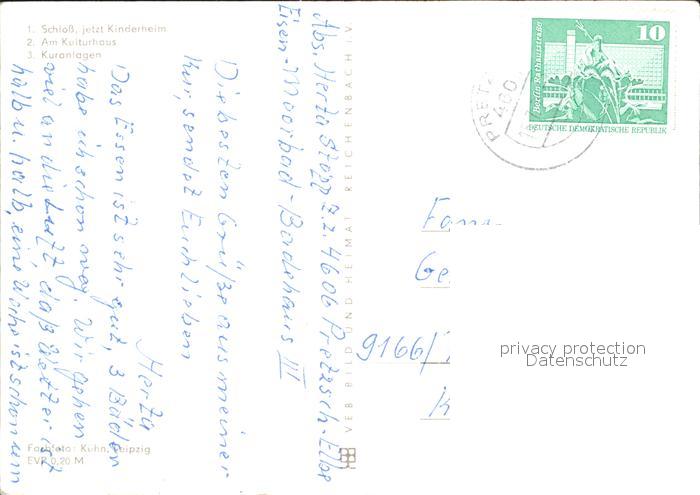 1. Schloß, jetzt Kinderheim
2. Am Kulturhaus
3. Kuranlagen
Abs. Herta z.Z. 4606 Pretzsch-Elbe
Eisen-Moorbad-Badehaus III
Die besten Grüße aus meiner
Kur, sendet Euch lieben
Herta
Das Essen ist sehr gut, 3 Bäder
habe ich schon weg. Wir gehen
viel an die Luft daß Wetter ist
halb u. halb, eine Woche ist schon um
Farbfoto: Kuhn, Leipzig
EVP 0,20 M
VEB BILD UND HEIMAT REICHENBACH I. V.
10
Berlin · Rathausstraße
DEUTSCHE DEMOKRATISCHE REPUBLIK
PRETZ
460
Fam
Ge
9166/
K
privacy protection
Datenschutz